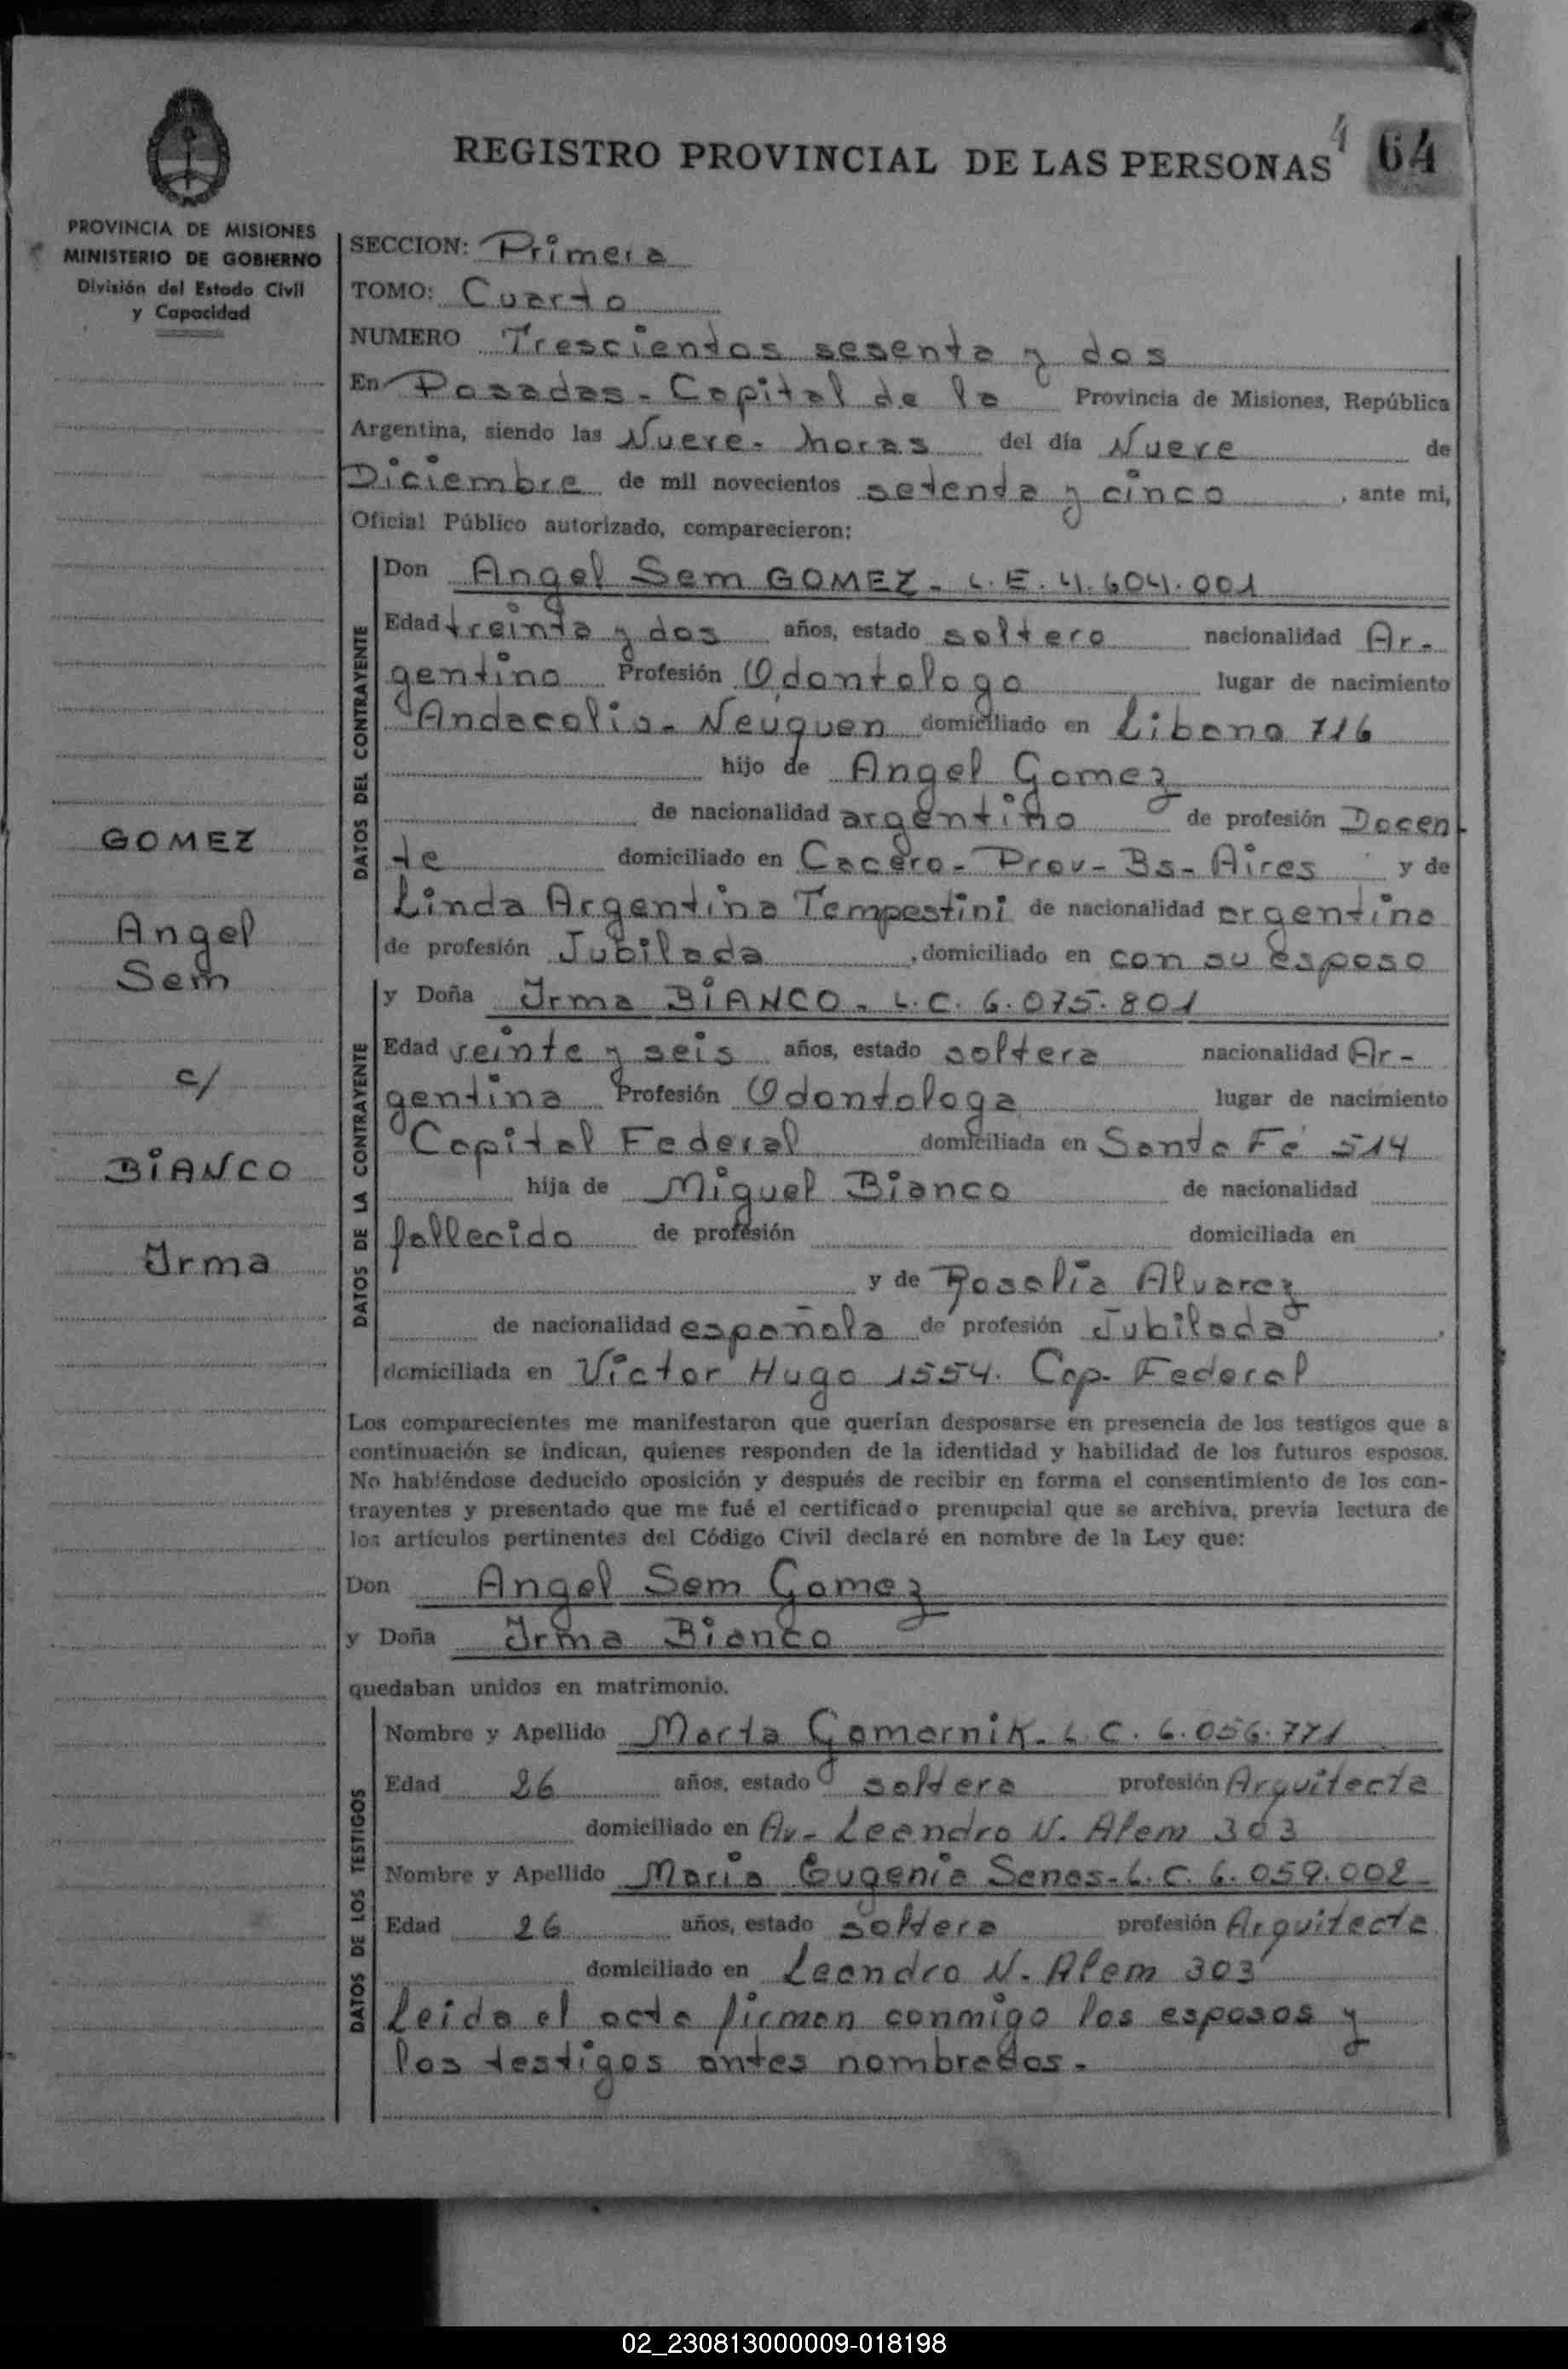 REGISTRO PROVINCIAL DE LAS PERSONAS
4
64
PROVINCIA DE MISIONES
MINISTERIO DE GOBIERNO
División del Estado Civil
y Capacidad
GOMEZ
Angel
Sem
c/
BIANCO
Irma
SECCION: Primera
TOMO: Cuarto
NUMERO Trescientos sesenta y dos
En Posadas - Capital de la Provincia de Misiones, República
Argentina, siendo las Nueve - horas del día Nueve de
Diciembre de mil novecientos setenta y cinco, ante mi,
Oficial Público autorizado, comparecieron:
DATOS DEL CONTRAYENTE
Don Angel Sem GOMEZ - L.E. 4.604.001
Edad treinta y dos años, estado soltero nacionalidad Ar-
gentino Profesión Odontologo lugar de nacimiento
Andacolio - Neuquen domiciliado en Libano 716
hijo de Angel Gomez
de nacionalidad argentino de profesión Docen
te domiciliado en Cacero - Prov - Bs - Aires y de
Linda Argentina Tempestini de nacionalidad argentina
de profesión Jubilada, domiciliado en con su esposo
DATOS DE LA CONTRAYENTE
y Doña Irma BIANCO - L.C. 6.075.801
Edad veinte y seis años, estado soltera nacionalidad Ar-
gentina Profesión Odontologa lugar de nacimiento
Capital Federal domiciliada en Santa Fé 514
hija de Miguel Bianco de nacionalidad
fallecido de profesión domiciliada en
y de Rosalía Alvarez
de nacionalidad española de profesión Jubilada,
domiciliada en Victor Hugo 1554. Cap. Federal
Los comparecientes me manifestaron que querían desposarse en presencia de los testigos que a
continuación se indican, quienes responden de la identidad y habilidad de los futuros esposos.
No habiéndose deducido oposición y después de recibir en forma el consentimiento de los con-
trayentes y presentado que me fué el certificado prenupcial que se archiva, previa lectura de
los artículos pertinentes del Código Civil declaré en nombre de la Ley que:
Don Angel Sem Gomez
y Doña Irma Bianco
quedaban unidos en matrimonio.
DATOS DE LOS TESTIGOS
Nombre y Apellido Marta Gomernik - L.C. 6.056.771
Edad 26 años, estado soltera profesión Arquitecta
domiciliado en Av - Leandro N. Alem 303
Nombre y Apellido Maria Eugenia Senes - L.C. 6.059.002
Edad 26 años, estado soltera profesión Arquitecta
domiciliado en Leandro N. Alem 303
Leida el acta firman conmigo los esposos y
los testigos antes nombrados -
02_230813000009-018198